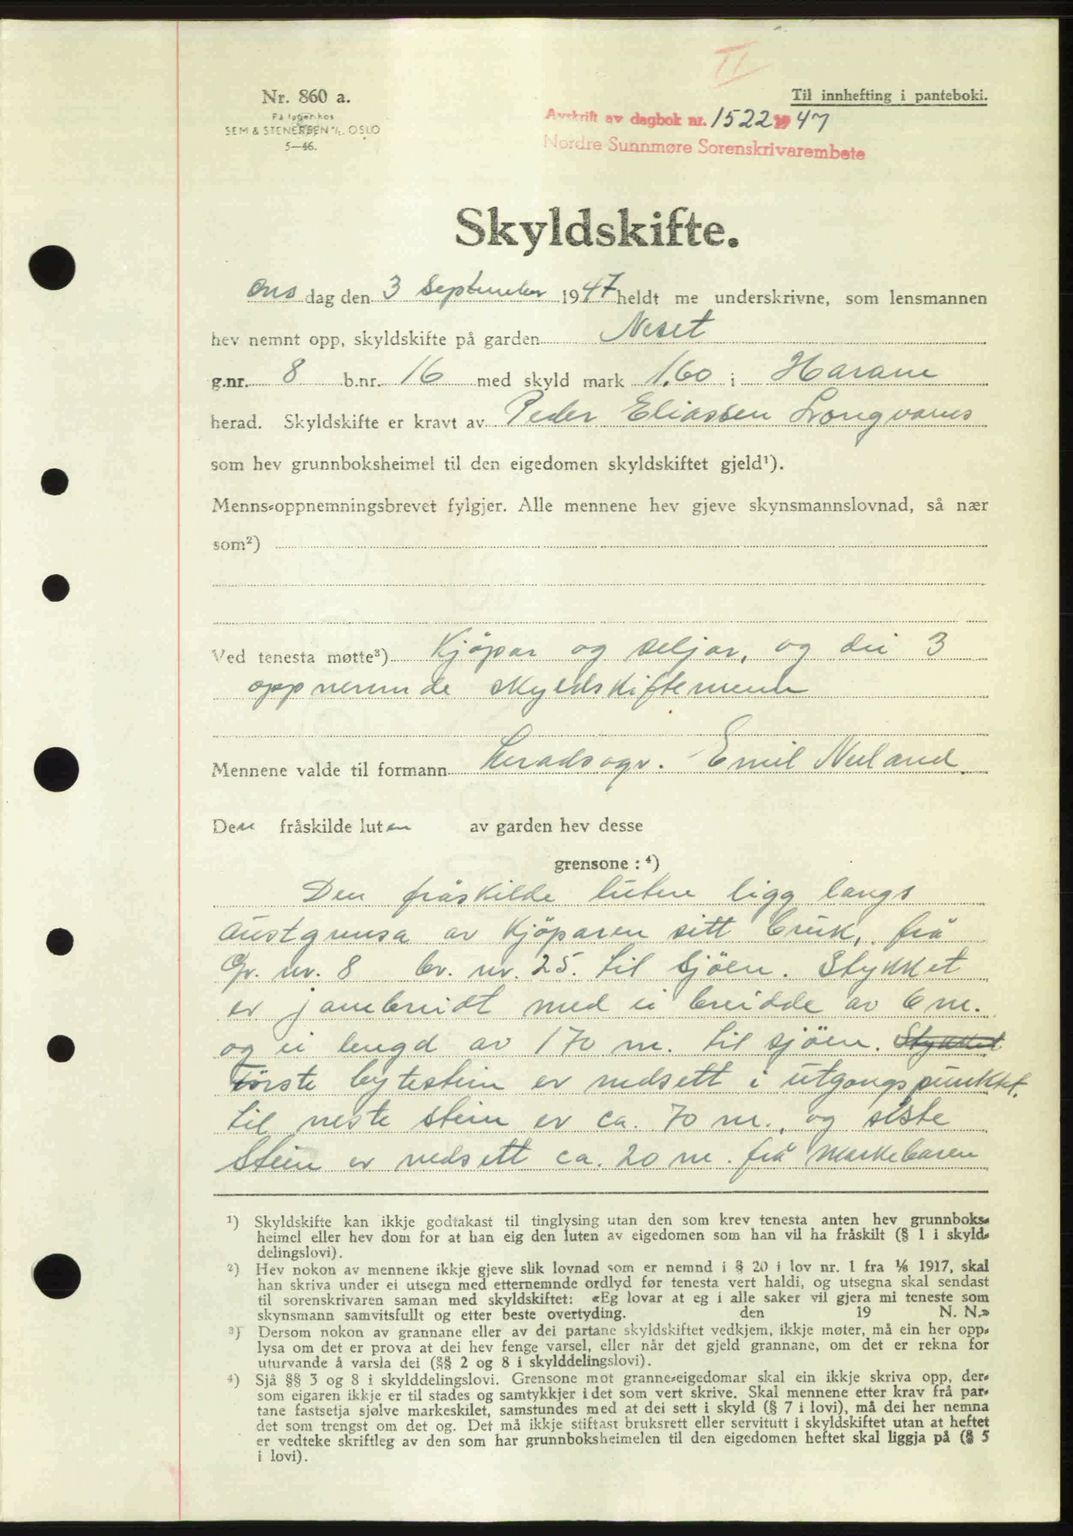 II
Nr. 860 a.
På lager hos
SEM & STENERSEN A/S. OSLO
5—46.
Til innhefting i panteboki.
Avskrift av dagbok nr. 1522 1947
Nordre Sunnmøre Sorenskrivarembete
Skyldskifte.
Ons dag den 3 September 1947 heldt me underskrivne, som lensmannen
hev nemnt opp, skyldskifte på garden Neset
g.nr. 8 b.nr. 16 med skyld mark 1,60 i Haram
herad. Skyldskifte er kravt av Peder Eliassen Longvanes
som hev grunnboksheimel til den eigedomen skyldskiftet gjeld¹).
Menns-oppnemningsbrevet fylgjer. Alle mennene hev gjeve skynsmannslovnad, så nær
som²)
Ved tenesta møtte³) Kjöpar og seljar, og dei 3
oppnemnde skyldskiftemenn
Mennene valde til formann heradsogr. Emil Nuland.
Den fråskilde luten av garden hev desse
grensone : ⁴)
Den fråskilde luten ligg langs
austgrensa av kjöparen sitt bruk, frå
Gr. nr. 8 br. nr. 25. til sjöen. Stykket
er jambreidt med ei breidde av 6 m.
og ei lengd av 170 m. til sjöen. Stykket
Förste bytestein er nedsett i utgangspunktet.
til neste stein er ca. 70 m., og siste
Stein er nedsett ca. 20 m. frå marebaren
¹) Skyldskifte kan ikkje godtakast til tinglysing utan den som krev tenesta anten hev grunnboks-
heimel eller hev dom for at han eig den luten av eigedomen som han vil ha fråskilt (§ 1 i skyld-
delingslovi).
²) Hev nokon av mennene ikkje gjeve slik lovnad som er nemnd i § 20 i lov nr. 1 fra ⅙ 1917, skal
han skriva under ei utsegn med etternemnde ordlyd før tenesta vert haldi, og utsegna skal sendast
til sorenskrivaren saman med skyldskiftet: «Eg lovar at eg i alle saker vil gjera mi teneste som
skynsmann samvitsfullt og etter beste overtyding. den 19 N. N.»
³) Dersom nokon av grannane eller av dei partane skyldskiftet vedkjem, ikkje møter, må ein her opp-
lysa om det er prova at dei hev fenge varsel, eller når det gjeld grannane, om det er rekna for
uturvande å varsla dei (§§ 2 og 8 i skylddelingslovi).
⁴) Sjå §§ 3 og 8 i skylddelingslovi. Grensone mot granne-eigedomar skal ein ikkje skriva opp, der-
som eigaren ikkje er til stades og samtykkjer i det som vert skrive. Skal mennene etter krav frå par-
tane fastsetja sjølve markeskilet, samstundes med at dei sett i skyld (§ 7 i lovi), må dei her nemna
det som trengst om det og. Det må ikkje stiftast bruksrett eller servitutt i skyldskiftet utan at heftet
er vedteke skriftleg av den som har grunnboksheimelen til den eigedomen heftet skal liggja på (§ 5
i lovi).